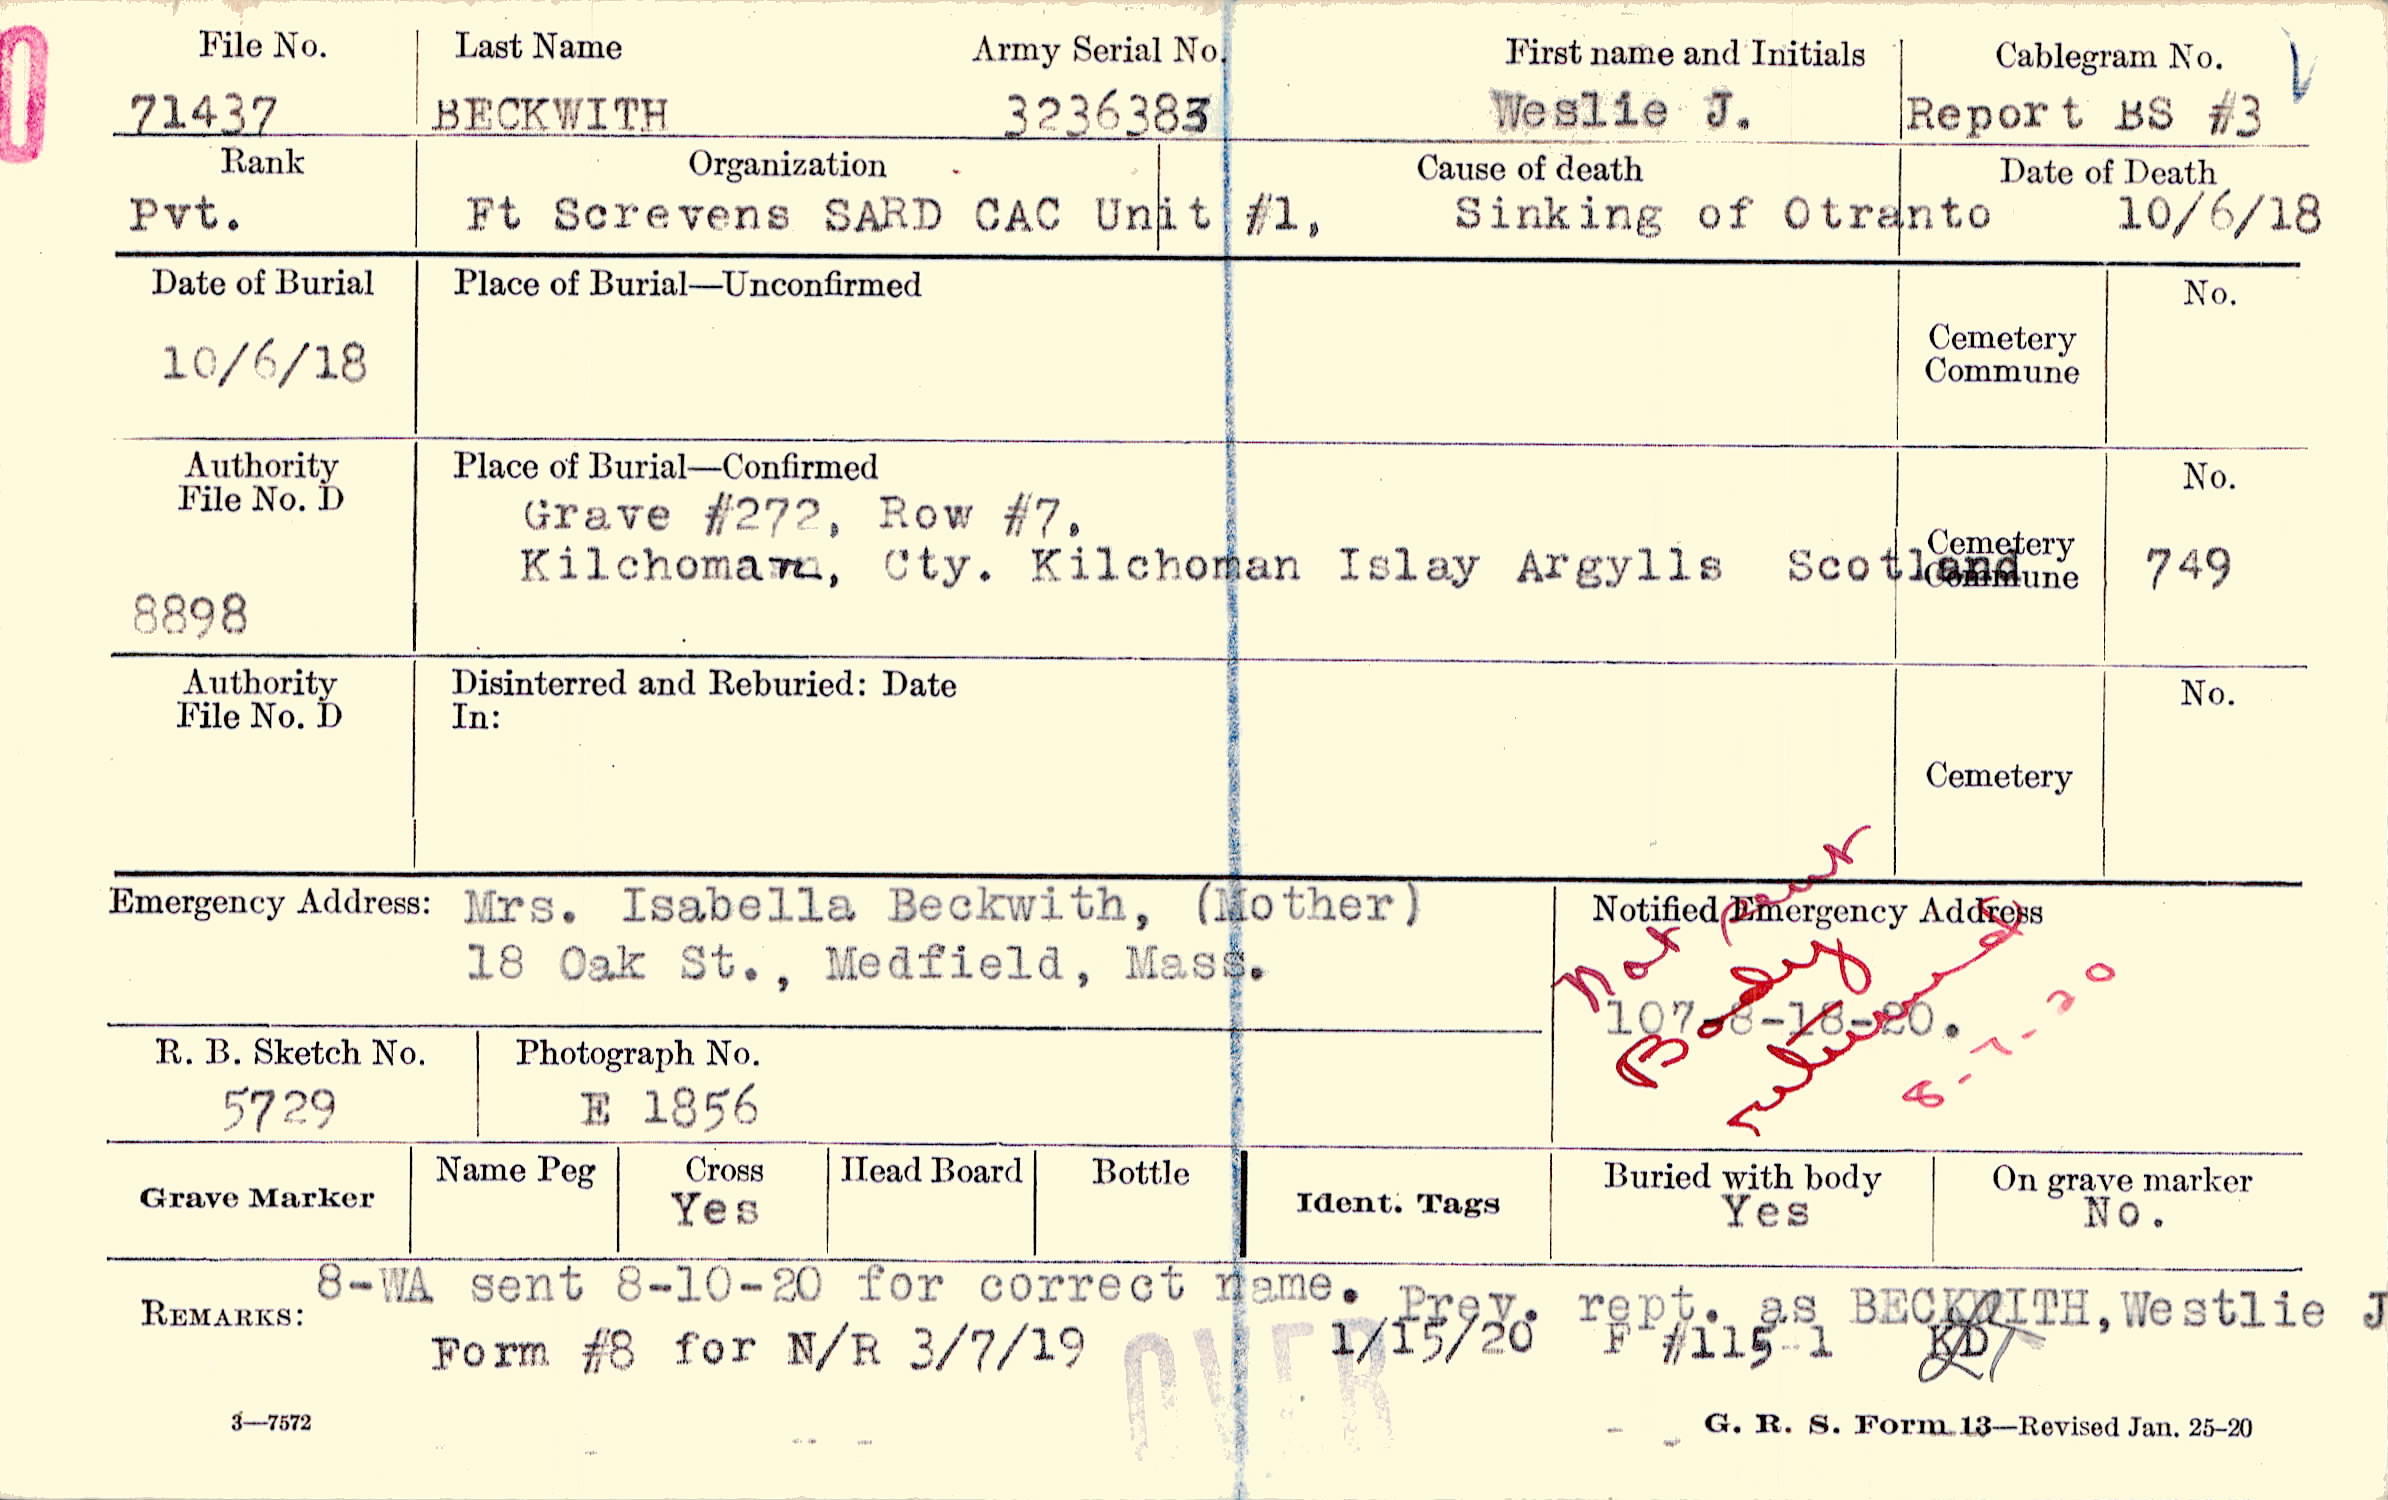 File No. Last Name Army Serial No. First name and Initials Cablegram No.
71437 BECKWITH 3236383 Weslie J. Report BS #3
Rank Organization Cause of death Date of Death
Pvt. Ft Screvens SARD CAC Unit #1, Sinking of Otranto 10/6/18
Date of Burial Place of Burial—Unconfirmed No.
10/6/18 Cemetery
Commune
Authority Place of Burial—Confirmed No.
File No. D Grave #272, Row #7,
Kilchoman, Cty. Kilchoman Islay Argylls Scotland Cemetery 749
Commune
8898
Authority Disinterred and Reburied: Date No.
File No. D In:
Cemetery
Emergency Address: Mrs. Isabella Beckwith, (Mother) Notified Emergency Address
18 Oak St., Medfield, Mass.
Not
Body
107-8-18-20.
8-7-20
R. B. Sketch No. Photograph No.
5729 E 1856
Grave Marker Name Peg Cross Head Board Bottle Ident. Tags Buried with body On grave marker
Yes Yes No.
8-WA sent 8-10-20 for correct name. Prev. rept. as BECKWITH, Westlie J
REMARKS:
Form #8 for N/R 3/7/19 1/15/20 F #115-1 KD
OVER
3—7572 G. R. S. Form 13—Revised Jan. 25-20